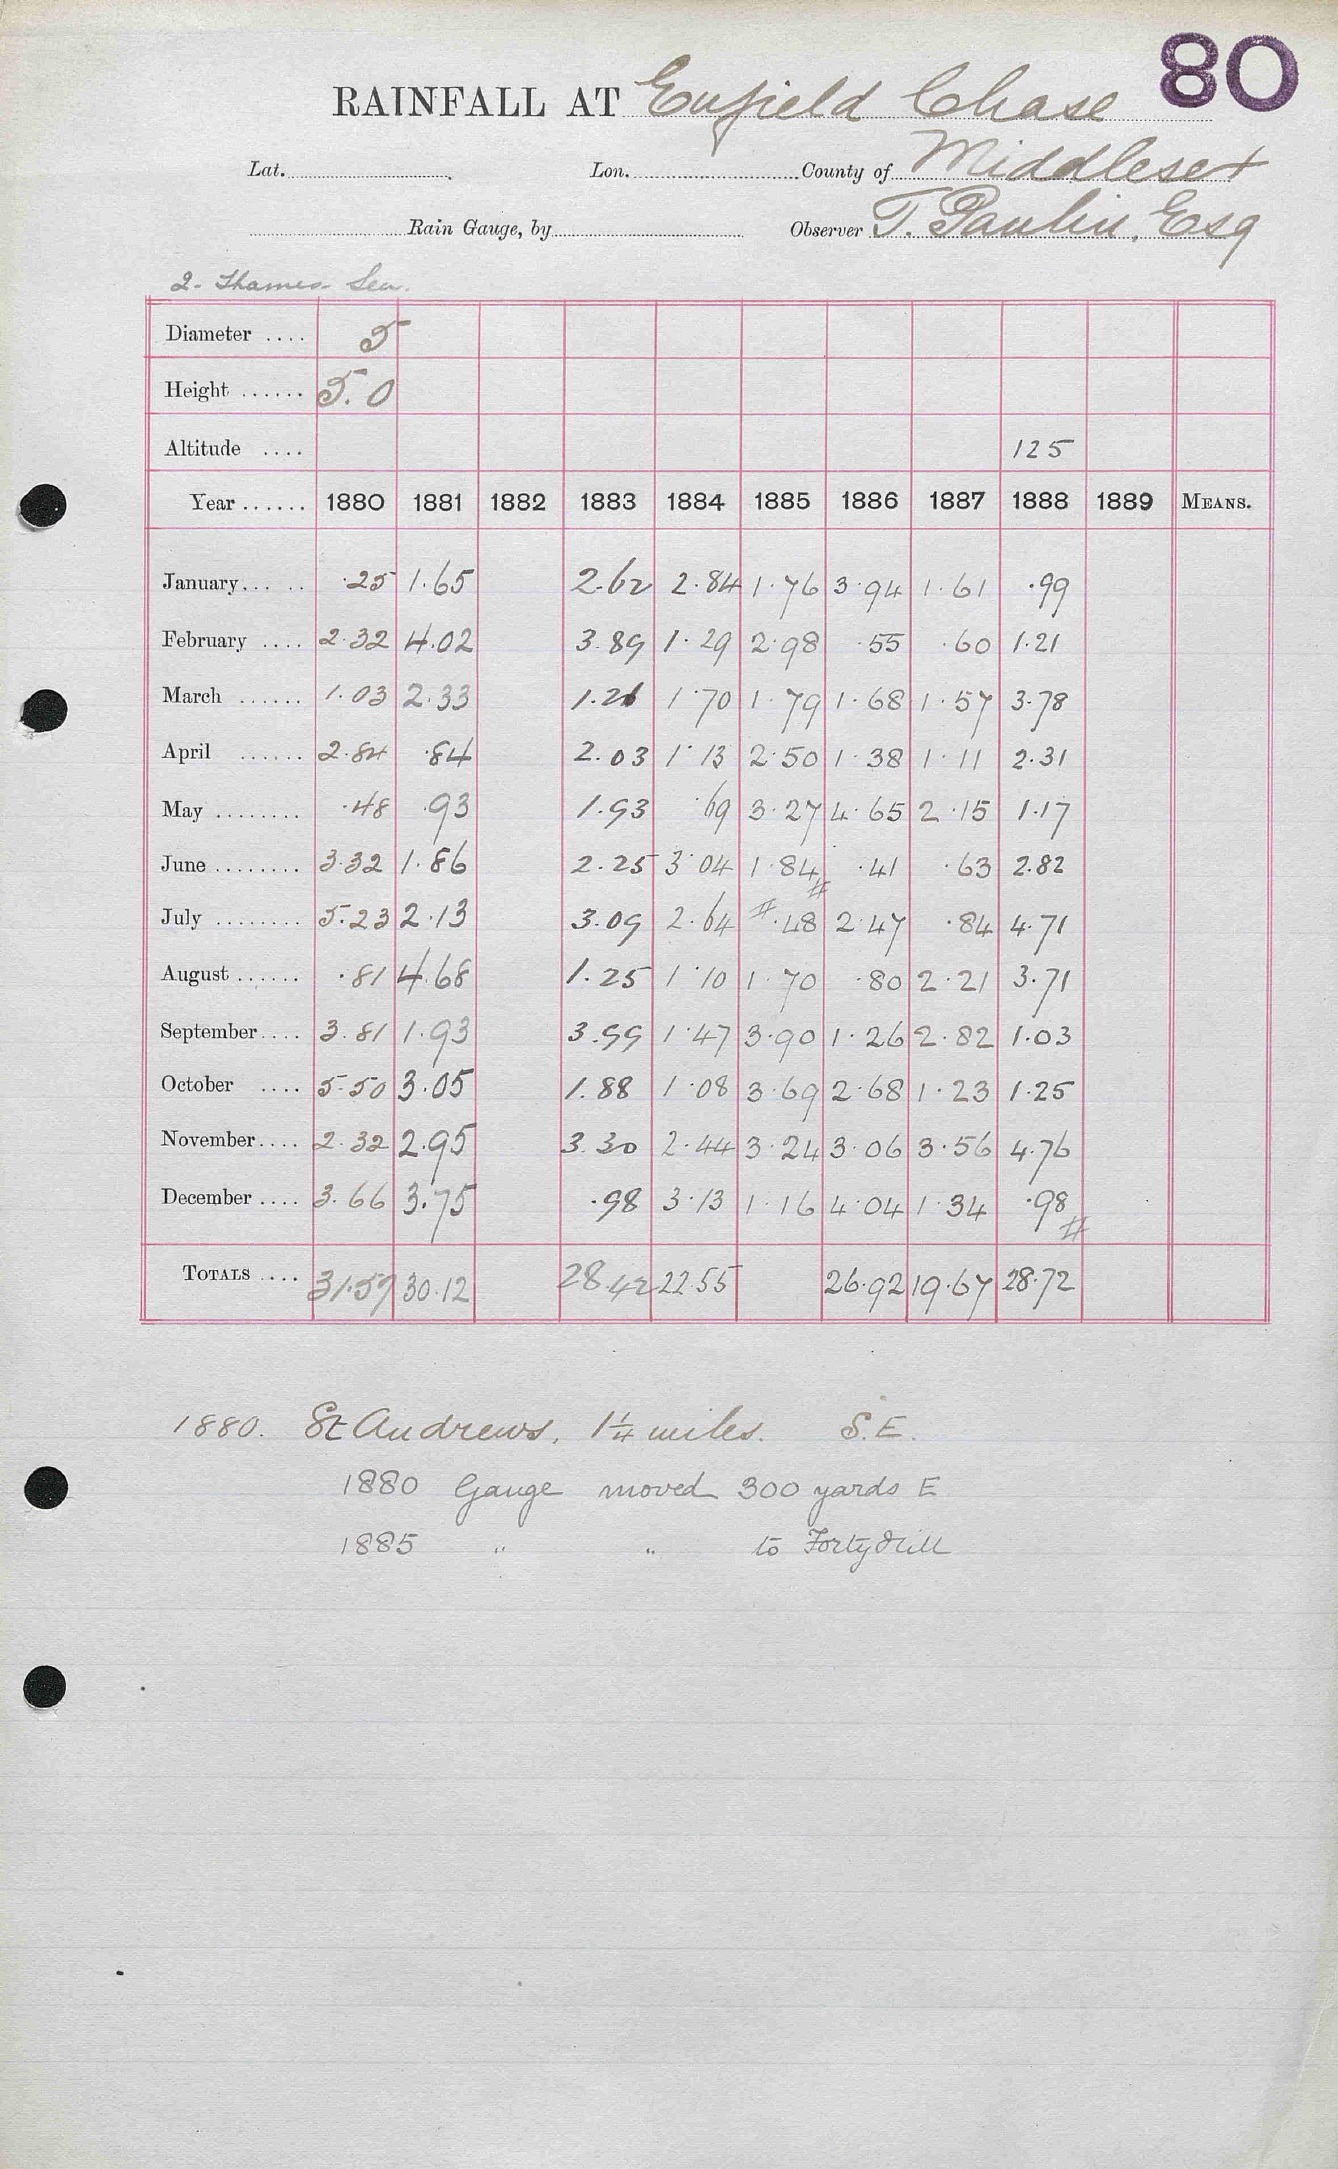 80
RAINFALL AT Enfield Chase
Lat. Lon. County of Middlesex
Rain Gauge, by Observer T. Paulin, Esq
2. Thames Sec.
Diameter .... 5
Height ...... 5.0
Altitude .... 125
Year ...... 1880 1881 1882 1883 1884 1885 1886 1887 1888 1889 MEANS.
January... .. .25 1.65 2.62 2.84 1.76 3.94 1.61 .99
February .... 2.32 4.02 3.89 1.29 2.98 .55 .60 1.21
March ...... 1.03 2.33 1.21 1.70 1.79 1.68 1.57 3.78
April ...... 2.84 .84 2.03 1.13 2.50 1.38 1.11 2.31
May ........ .48 .93 1.93 .69 3.27 4.65 2.15 1.17
June ........ 3.32 1.86 2.25 3.04 1.84 .41 .63 2.82
July ........ 5.23 2.13 3.09 2.64 .48 2.47 .84 4.71
August ...... .81 4.68 1.25 1.10 1.70 .80 2.21 3.71
September.... 3.81 1.93 3.99 1.47 3.90 1.26 2.82 1.03
October .... 5.50 3.05 1.88 1.08 3.69 2.68 1.23 1.25
November.... 2.32 2.95 3.30 2.44 3.24 3.06 3.56 4.76
December .... 3.66 3.75 .98 3.13 1.16 4.04 1.34 .98
TOTALS .... 31.57 30.12 28.42 22.55 26.92 19.67 28.72
1880. St Andrews, 1¼ miles. S.E.
1880 Gauge moved 300 yards E
1885 " " to Forty Hill